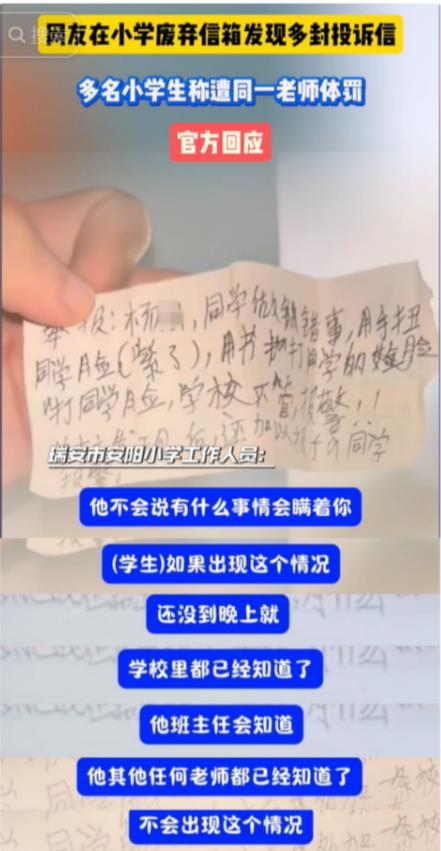 搜索
网友在小学废弃信箱发现多封投诉信
多名小学生称遭同一老师体罚
官方回应
举报:杨 ,同学做错事,用手扭
同学脸(紫了),用书 打同学的 脸
打同学脸,学校不管,报警!!
还加以 同学
瑞安市安阳小学工作人员:
他不会说有什么事情会瞒着你
(学生)如果出现这个情况
还没到晚上就
学校里都已经知道了
他班主任会知道
他其他任何老师都已经知道了
不会出现这个情况